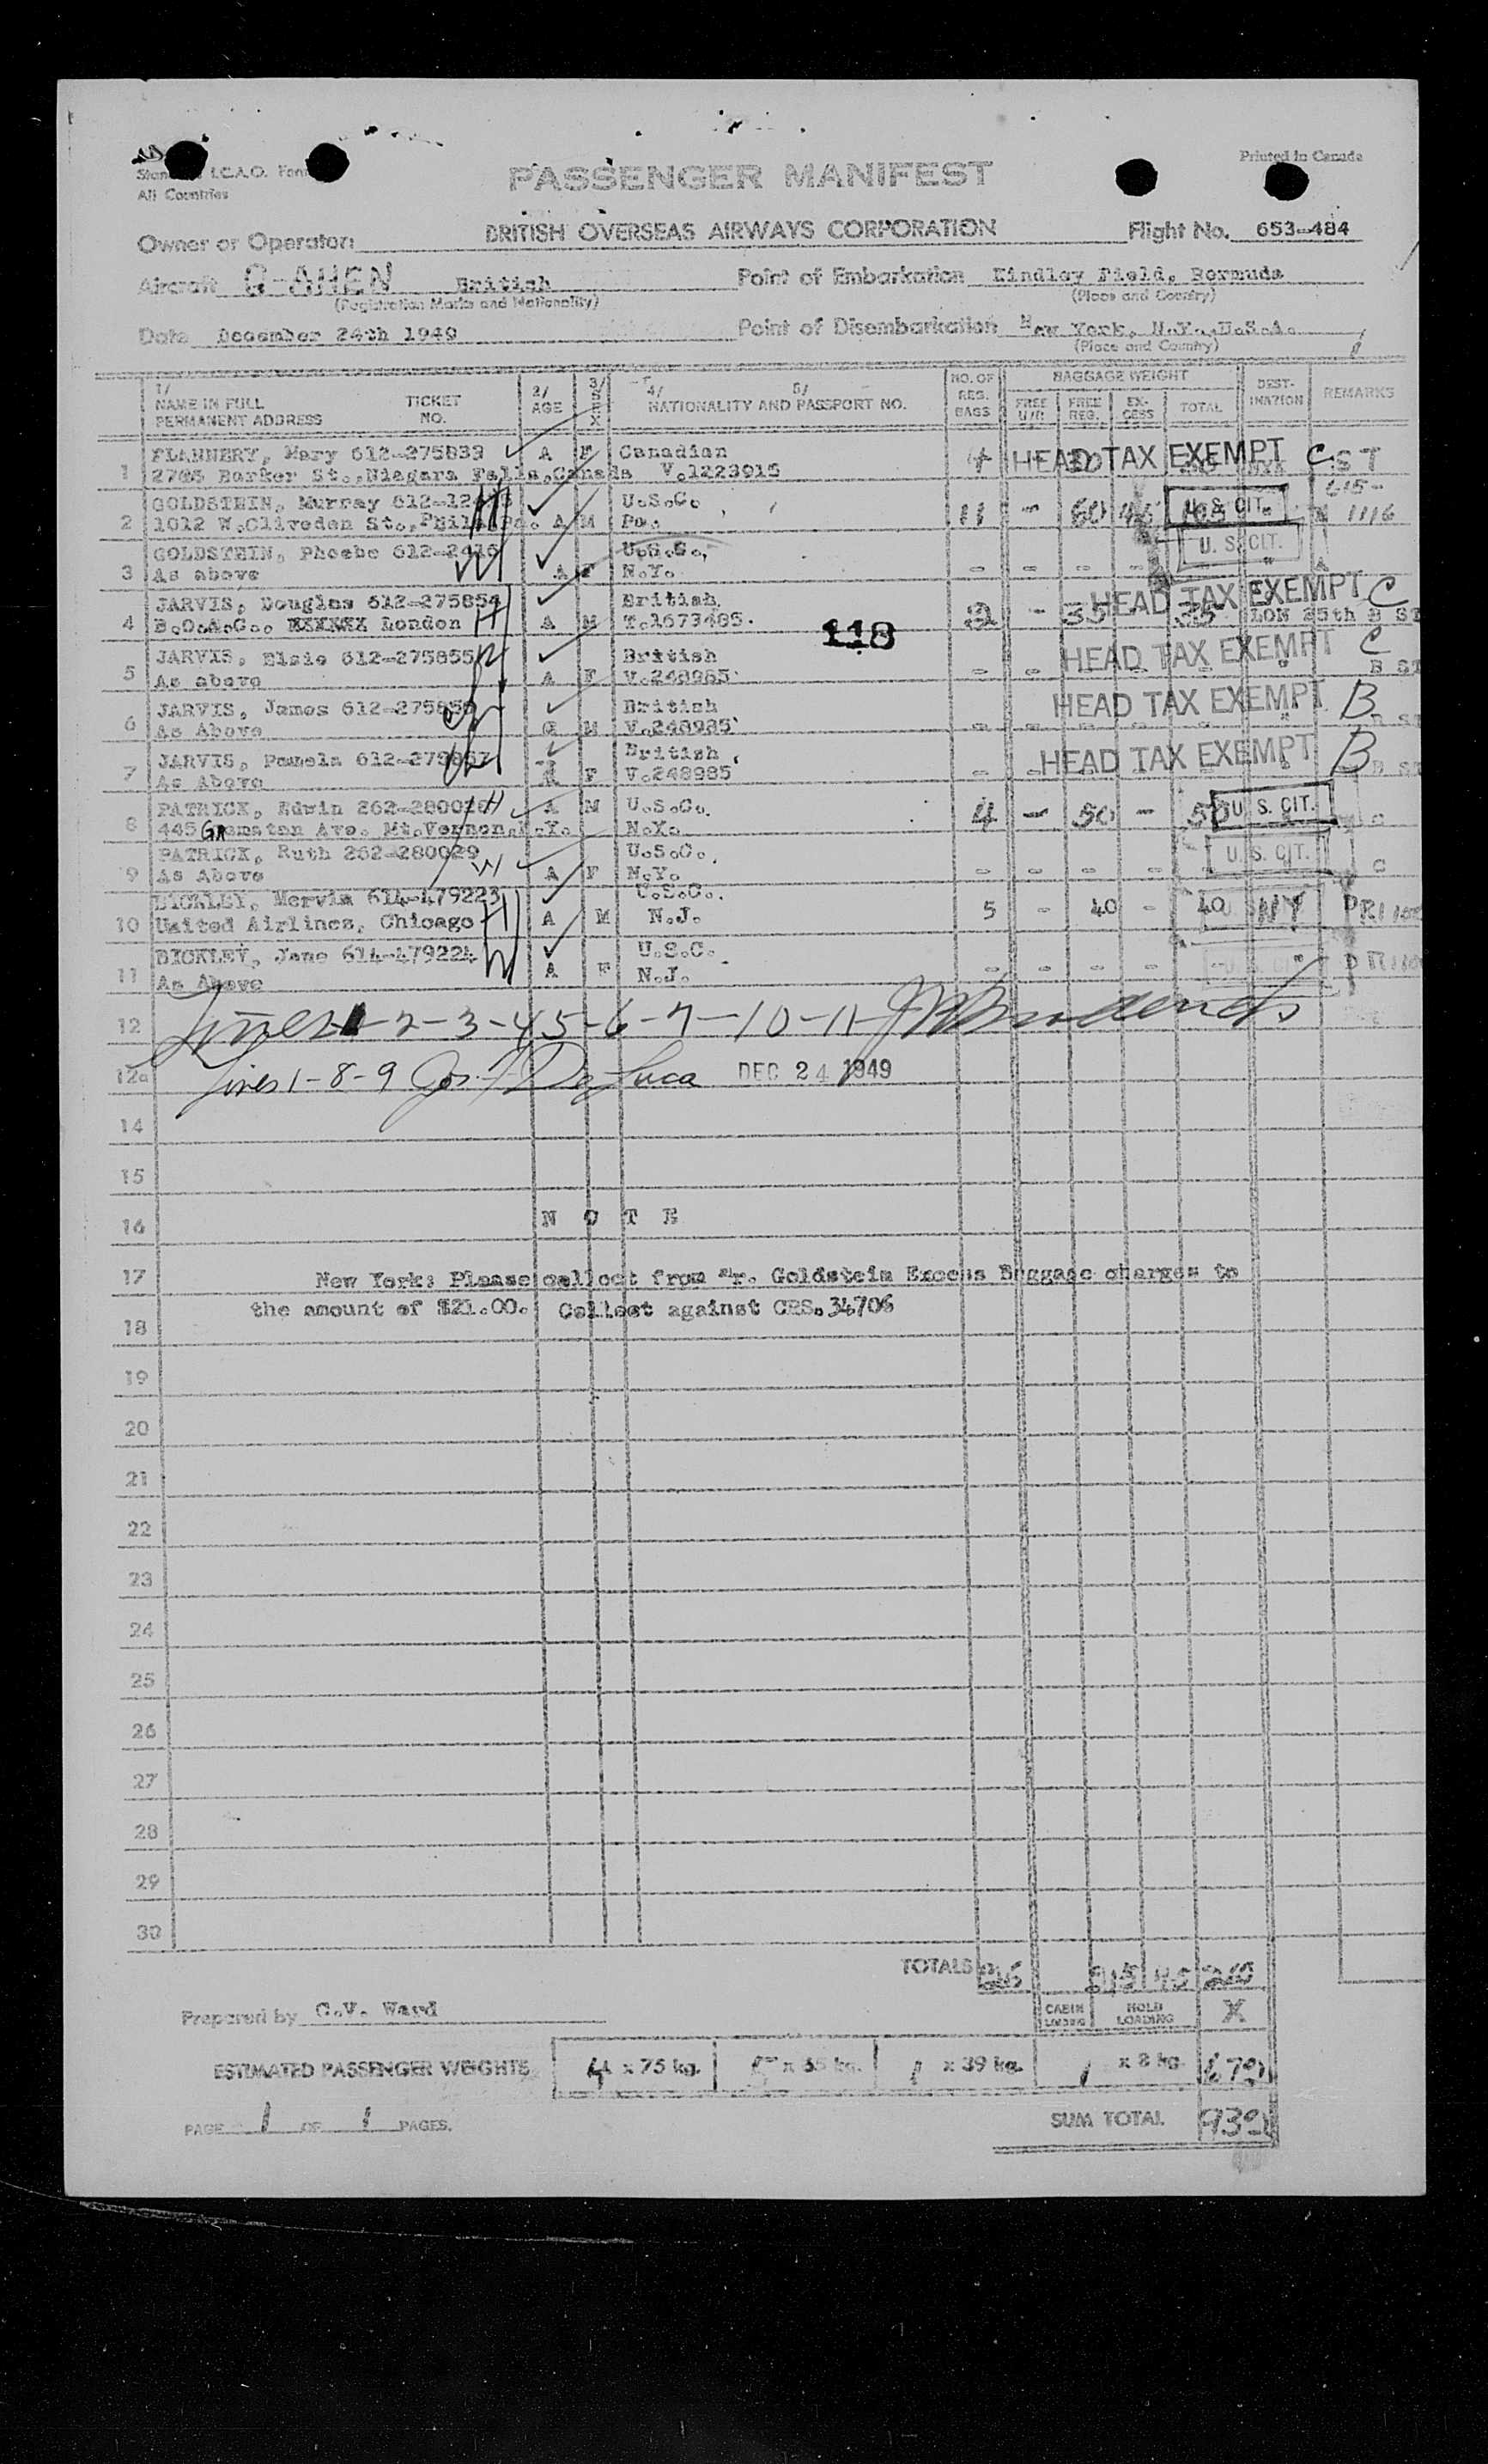 Printed in Canada
All Countries
PASSENGER MANIFEST
Owner or Operator: BRITISH OVERSEAS AIRWAYS CORPORATION Flight No. 653-484
Aircraft G-AHEN British Point of Embarkation Kindley Field, Bermuda
(Registration Marks and Nationality) (Place and Country)
Date December 24th 1949 Point of Disembarkation New York, N.Y. U.S.A.
(Place and Country)
1/ NAME IN FULL PERMANENT ADDRESS TICKET NO. 2/ AGE 3/ SEX 4/ 5/ NATIONALITY AND PASSPORT NO. NO. OF REG. BAGS BAGGAGE WEIGHT FREE FREE REG. EX-CESS TOTAL DEST-INATION REMARKS
1 FLANNERY, Mary 612-275833 A F Canadian HEAD TAX EXEMPT C ST
Barker St., Niagara Falls, Canada V.1223915
2 GOLDSTEIN, Murray U.S.C. 11 - 60 45 U. S. CIT.
1012 W. Cliveden St., A M Pa. 1116
3 GOLDSTEIN, Phoebe 612- U.S.C. U. S. CIT.
As above A F N.Y. - - - -
4 JARVIS, Douglas 612-275854 British HEAD TAX EXEMPT C
B.O.A.C. London A M T.1673485. 2 - 35 35 LON 25th B ST
118
5 JARVIS, Elsie 612-275855 British HEAD TAX EXEMPT C
As above A F V.248985 - - B ST
6 JARVIS, James British HEAD TAX EXEMPT B
As Above M V.248985
7 JARVIS, Pamela British HEAD TAX EXEMPT B
As Above F V.248985
8 PATRICK, Edwin A M U.S.C. 4 - 50 - 50 U. S. CIT. C
Ave. Mt. Vernon, N.Y. N.Y.
9 PATRICK, Ruth 262-280029 U.S.C. U. S. CIT.
As Above A F N.Y. - - - - C
10 BICKLEY, Mervin 614-479223 U.S.C. 5 - 40 - 40 NY D
United Airlines, Chicago A M N.J.
11 BICKLEY, Jane 614-479224 U.S.C.
As Above A F N.J. - - - - D
12
12a Lines 1-8-9 DEC 24 1949
14
15
16 N O T E
17 New York: Please collect from Mr. Goldstein Excess Baggage charges to
the amount of $21.00. Collect against CRS. 34706
18
19
20
21
22
23
24
25
26
27
28
29
30
TOTALS 26 215 45 260
Prepared by C.V. Ward CABIN HOLD LOADING X
ESTIMATED PASSENGER WEIGHTS 4 x 75 kg. x 65 kg. 1 x 39 kg. 1 x 8 kg. 670
PAGE 1 OF 1 PAGES. SUM TOTAL 930